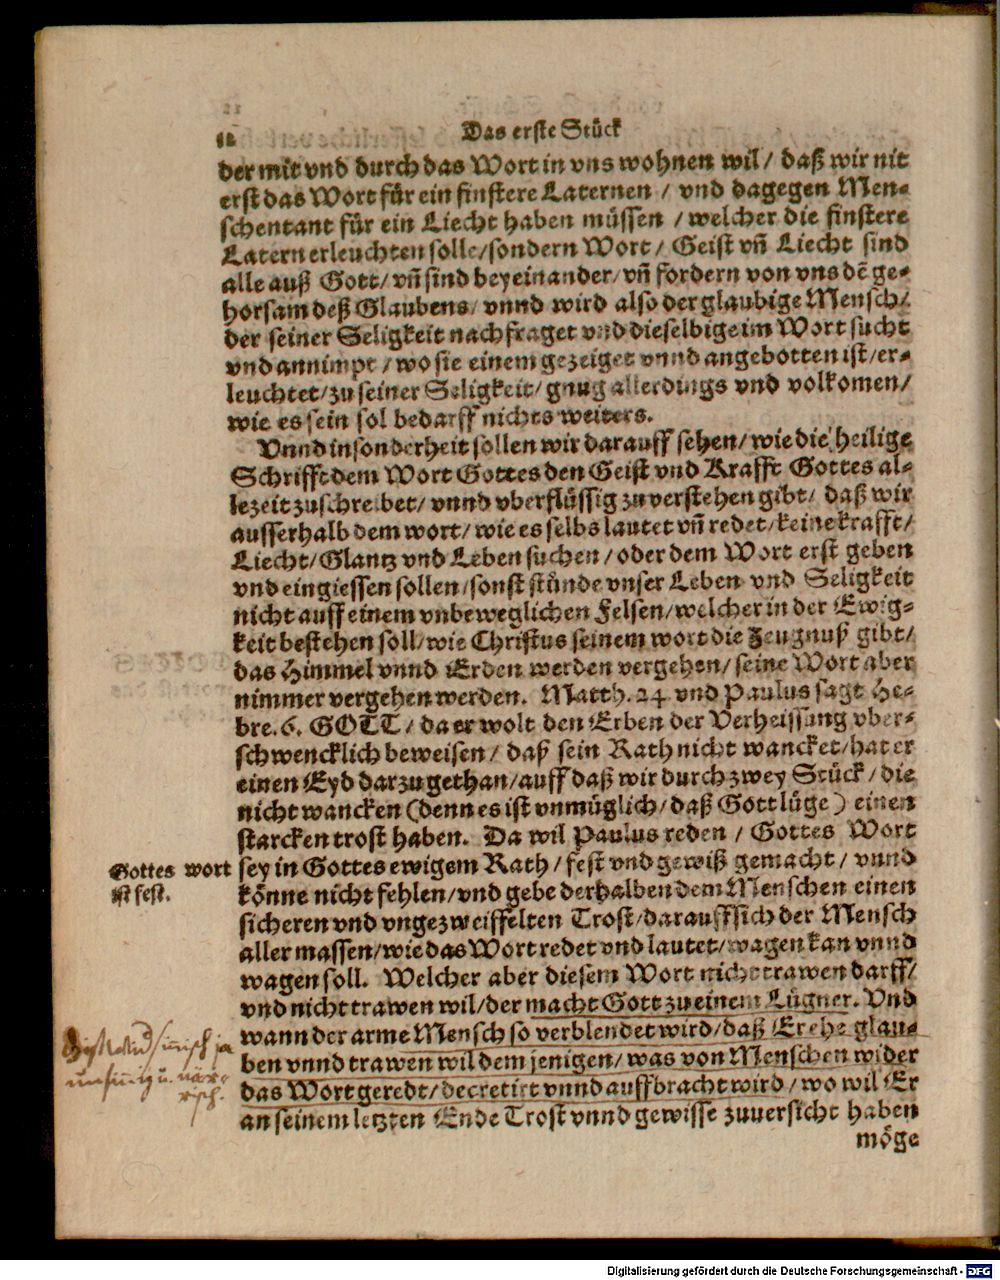 12
Das erste Stück
der mit vnd durch das Wort in vns wohnen wil / daß wir nit
erst das Wort für ein finstere Laternen / vnd dagegen Men-
schentant für ein Liecht haben müssen / welcher die finstere
Latern erleuchten solle/sondern Wort / Geist vñ Liecht sind
alle auß Gott/ vñ sind bey einander/ vñ fordern von vns dẽ ge-
horsam deß Glaubens/ vnnd wird also der glaubige Mensch/
der seiner Seligkeit nachfraget vnd dieselbige im Wort sucht
vnd annimpt / wo sie einem gezeiget vnnd angebotten ist/er-
leuchtet/zu seiner Seligkeit/ gnug allerdings vnd volkomen/
wie es sein sol bedarff nichts weiters.
Vnnd insonderheit sollen wir darauff sehen/ wie die heilige
Schrifft dem Wort Gottes den Geist vnd Krafft Gottes al-
lezeit zuschreibet/ vnnd vberflüssig zuverstehen gibt/ daß wir
ausserhalb dem wort/ wie es selbs lautet vñ redet/keine krafft/
Liecht/Glantz vnd Leben suchen / oder dem Wort erst geben
vnd eingiessen sollen/sonst stünde vnser Leben vnd Seligkeit
nicht auff einem vnbeweglichen Felsen/welcher in der Ewig-
keit bestehen soll/ wie Christus seinem wort die Zeugnuß gibt/
das Himmel vnnd Erden werden vergehen/ seine Wort aber
nimmer vergehen werden. Matth. 24 vnd Paulus sagt He-
bre. 6. GOTT / da er wolt den Erben der Verheissung vber-
schwencklich beweisen / daß sein Rath nicht wancket/hat er
einen Eyd darzu gethan/auff daß wir durch zwey Stück / die
nicht wancken (denn es ist vnmüglich/daß Gott lüge) einen
starcken trost haben. Da wil Paulus reden / Gottes Wort
Gottes wort
ist fest.
sey in Gottes ewigem Rath / fest vnd gewiß gemacht / vnnd
könne nicht fehlen/vnd gebe derhalben dem Menschen einen
sicheren vnd vngezweiffelten Trost/darauff sich der Mensch
aller massen/wie das Wort redet vnd lautet/wagen kan vnnd
wagen soll. Welcher aber diesem Wort nicht trawen darff/
vnd nicht trawen wil/der macht Gott zu einem Lügner. Vnd
wann der arme Mensch so verblendet wird/daß Er ehe glau-
ben vnnd trawen wil dem jenigen/ was von Menschen wider
das Wort geredt/decretirt vnnd auffbracht wird / wo wil Er
an seinem letzten Ende Trost vnnd gewisse zuuersicht haben
möge
ja
närrisch.
Digitalisierung gefördert durch die Deutsche Forschungsgemeinschaft - DFG